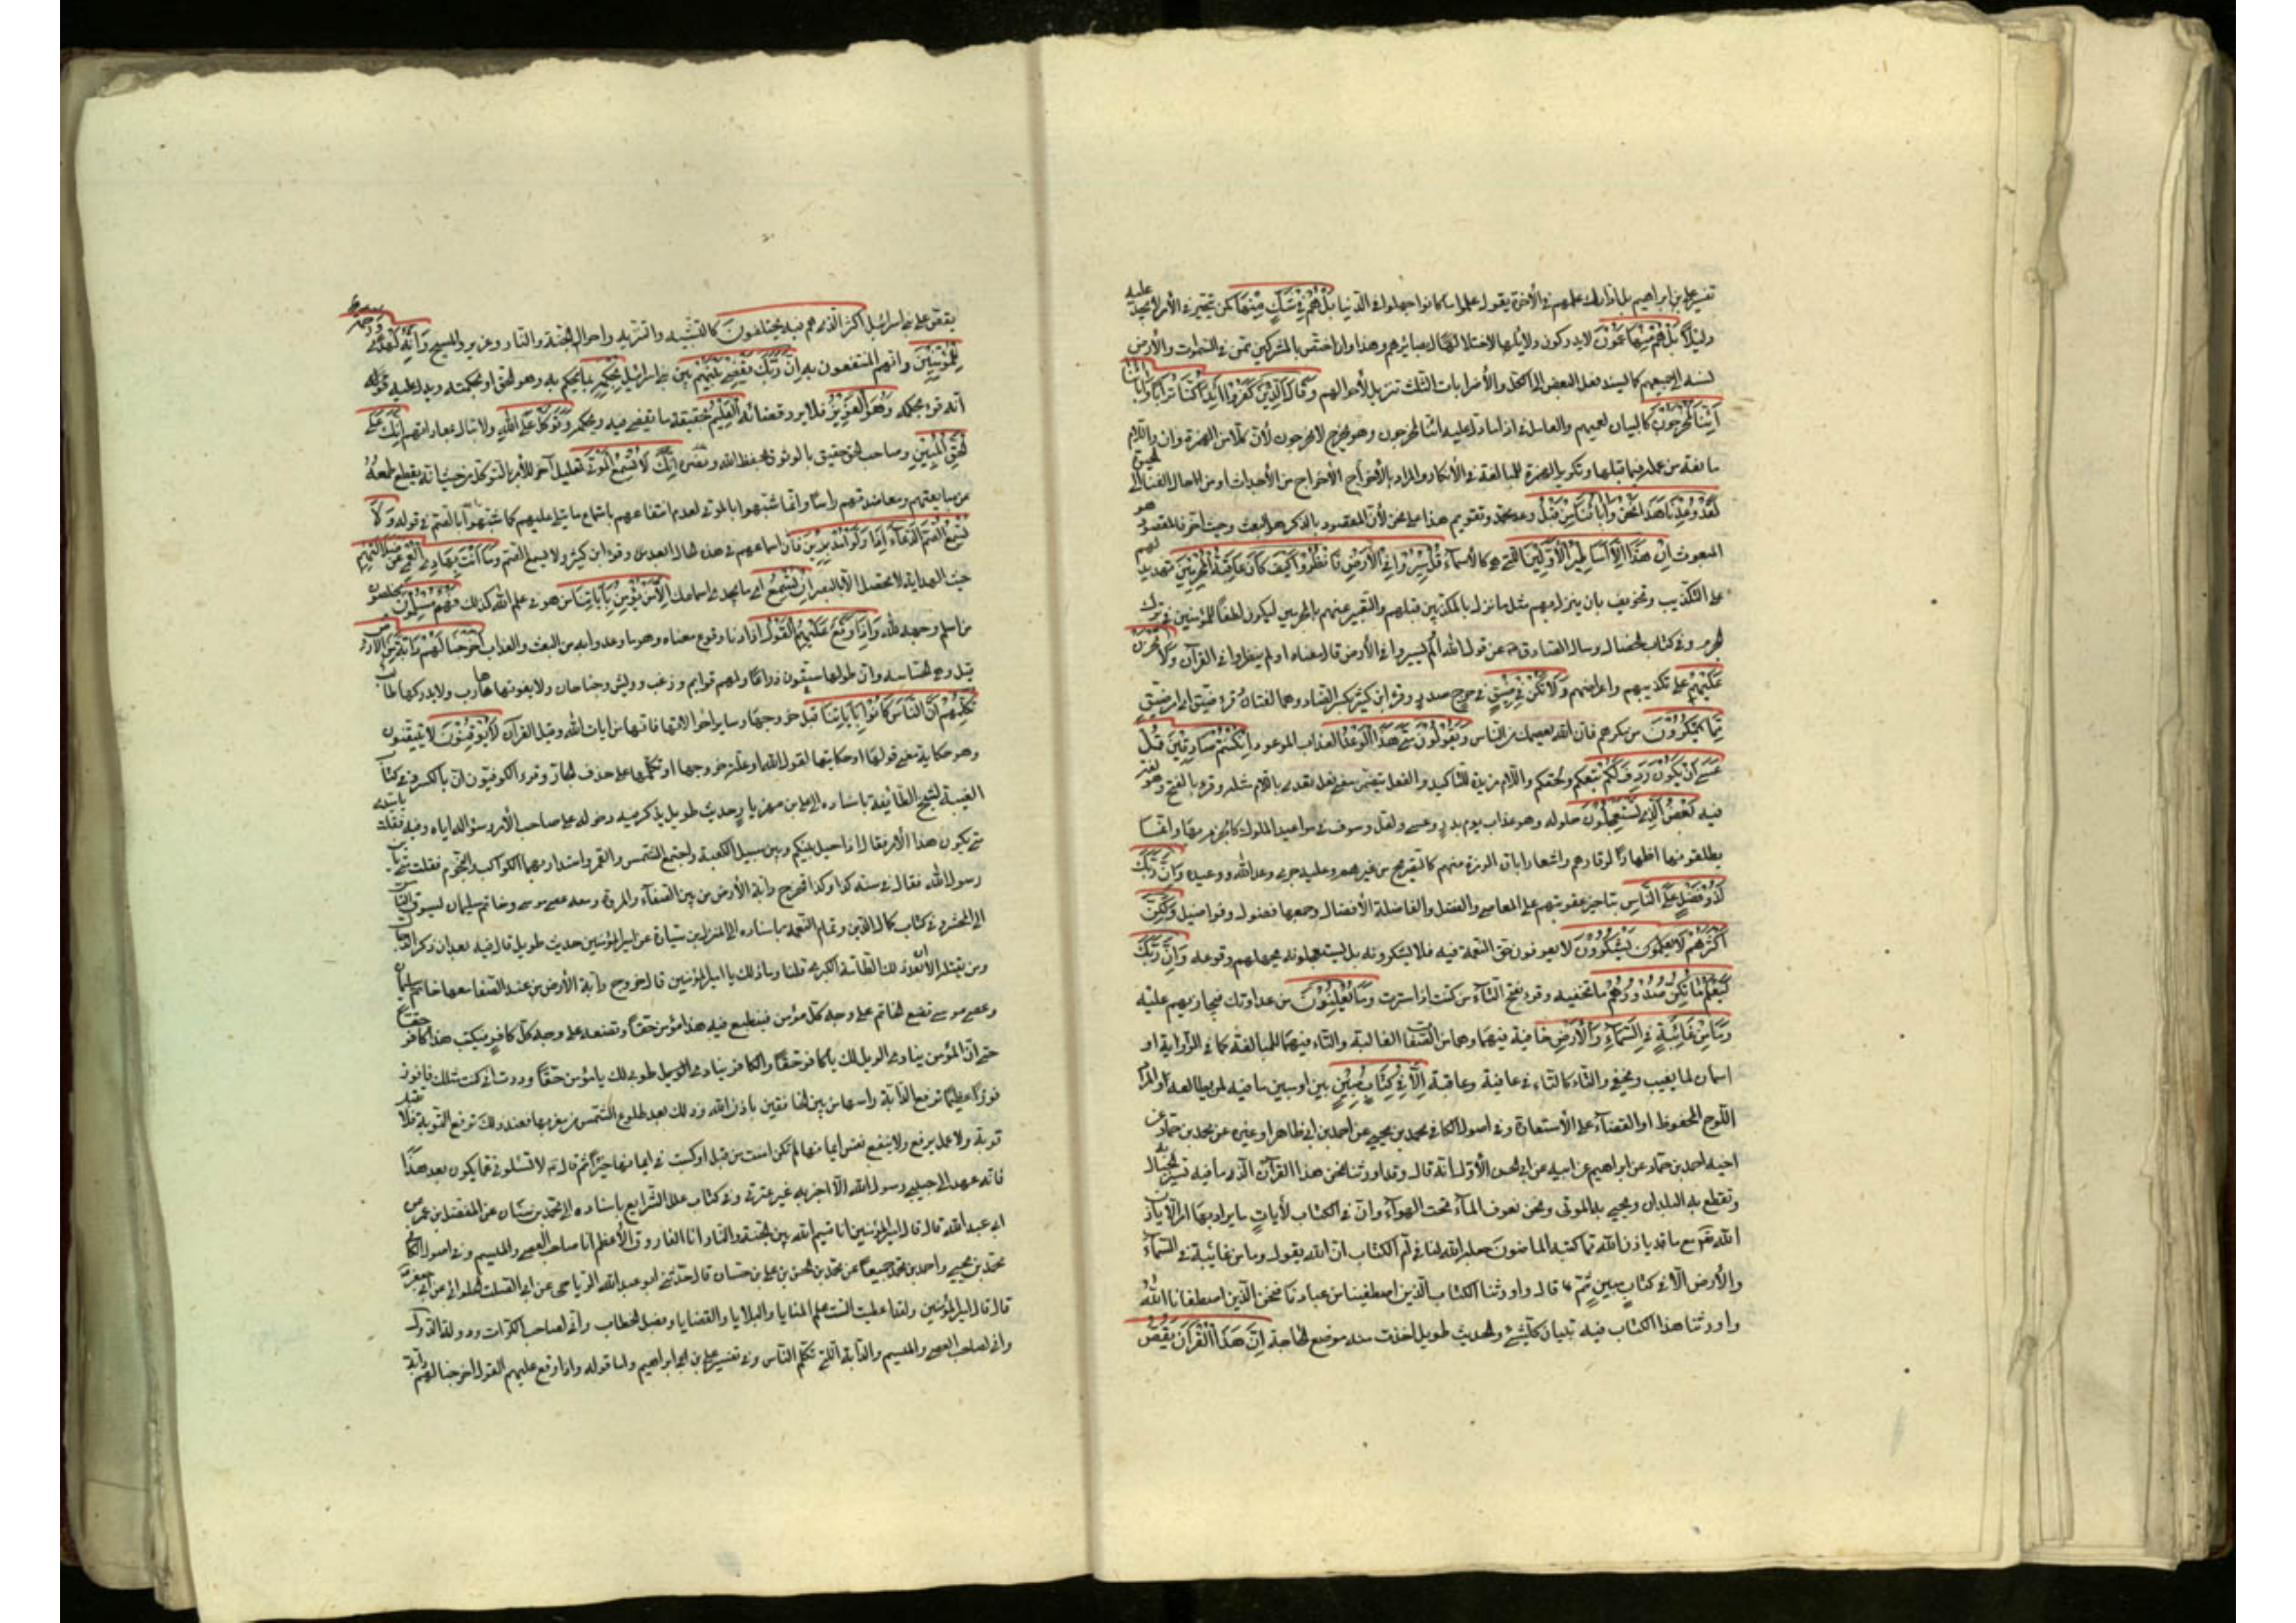 تفسير علي بن ابراهيم علمهم في الأخرة يقول علموا ما كانوا جهلوا في الدنيا بَلْ هُمْ فِي شَكٍّ مِنْهَا كمن تحير في الأمر لا يجد عليه
دليلاً بَلْ هُمْ مِنْهَا عَمُونَ لا يدركون دلايلها لاختلال بصائرهم وهذا وان اختص بالمشركين ممن في السموات والأرض
نسب الى جميعهم كما يسند فعل البعض الى الكل والأضرابات الثلث تنزيل لأحوالهم وَقَالَ الَّذِينَ كَفَرُوا أَئِذَا كُنَّا تُرَابًا وَآبَاؤُنَا
أَئِنَّا لَمُخْرَجُونَ كالبيان لعمههم والعامل في اذا ما دل عليه ائنا لمخرجون وهو نخرج لا مخرجون لأن كلا من الهمزة وان واللام
مانعة من عمله فيما قبلها وتكرير الهمزة للمبالغة في الأنكار والمراد بالأخراج الأخراج من الأجداث او من الحال الفناء الى الحيوة
لَقَدْ وُعِدْنَا هَذَا نَحْنُ وَآبَاؤُنَا مِنْ قَبْلُ وعد محمد وتقديم هذا على نحن لأن المقصود بالذكر هو البعث وحيث اخر فالمقصود هو
المبعوث إِنْ هَذَا إِلَّا أَسَاطِيرُ الْأَوَّلِينَ التي هي كالأسماء قُلْ سِيرُوا فِي الْأَرْضِ فَانْظُرُوا كَيْفَ كَانَ عَاقِبَةُ الْمُجْرِمِينَ تهديد لهم
على التكذيب وتخويف بان ينزل بهم مثل ما نزل بالمكذبين قبلهم والتعبير عنهم بالمجرمين ليكون لطفاً للمؤمنين في ترك
الجرم وفي كتاب الخصال وسال الصادق عن قول الله أَوَلَمْ يسيروا في الأرض قال معناه اولم ينظروا في القرآن وَلَا تَحْزَنْ
عَلَيْهِمْ على تكذيبهم واعراضهم وَلَا تَكُنْ فِي ضَيْقٍ في حرج صدر وقرء ابن كثير بكسر الضاد وهما لغتان وقرء ضيق اي امر ضيق
مِمَّا يَمْكُرُونَ من مكرهم فان الله يعصمك من الناس وَيَقُولُونَ مَتَى هَذَا الْوَعْدُ العذاب الموعود إِنْ كُنْتُمْ صَادِقِينَ قُلْ
عَسَى أَنْ يَكُونَ رَدِفَ لَكُمْ تبعكم ولحقكم واللام مزيدة للتأكيد او الفعل يتضمن معنى فعل تعدى باللام مثله وقرء بالفتح وهو لغة
فيه بَعْضُ الَّذِي تَسْتَعْجِلُونَ حلوله وهو عذاب يوم بدر وعسى ولعل وسوف في مواعيد الملوك كالجزم بها وانما
يطلقونها اظهاراً لوقارهم واشعارا بان الرمزة منهم كالتصريح من غيرهم وعليه جرى وعد الله ووعيده وَإِنَّ رَبَّكَ
لَذُو فَضْلٍ عَلَى النَّاسِ بتاخير عقوبتهم على المعاصي والفضل والفاضلة الأفضال وجمعها فضول وفواضل وَلَكِنَّ
أَكْثَرَهُمْ لَا يَشْكُرُونَ لا يعرفون حق النعمة فيه فلا يشكرونه بل يستعجلونه بجهلهم وقوعه وَإِنَّ رَبَّكَ
لَيَعْلَمُ مَا تُكِنُّ صُدُورُهُمْ ما تخفيه وقرء بفتح التاء من كننت اذا سترت وَمَا يُعْلِنُونَ من عداوتك فيجازيهم عليه
وَمَا مِنْ غَائِبَةٍ فِي السَّمَاءِ وَالْأَرْضِ خافية فيهما وهما من الصفات الغالبة والتاء فيهما للمبالغة كما في الراوية او
اسمان لما يغيب ويخفى والتاء كالتاء في عافية وعاقبة إِلَّا فِي كِتَابٍ مُبِينٍ بين او مبين ما فيه لمن يطالعه والمراد
اللوح المحفوظ او القضاء على الأستعارة وفي اصول الكافي محمد بن يحيى عن احمد بن ابي ظاهر او غيره عن محمد بن حماد عن
اخيه احمد بن حماد عن ابراهيم عن ابيه عن ابي الحسن الأول انه قال وقد اورثنا نحن هذا القرآن الذي ما فيه تسير به الجبال
وتقطع به البلدان ويحيى به الموتى ونحن نعرف الماء تحت الهواء وان في الكتاب لأيات ما يراد بها امر الا باذن
الله مع ما قد ياذن الله مما كتبه الماضون جعله الله لنا في ام الكتاب ان الله يقول وما من غائبة في السماء
والأرض الا في كتاب مبين ثم قال واورثنا الكتاب الذين اصطفينا من عبادنا فنحن الذين اصطفانا الله
واورثنا هذا الكتاب فيه تبيان كلشئ والحديث طويل اخذت منه موضع الحاجة إِنَّ هَذَا الْقُرْآنَ يَقُصُّ
يقص على بني اسرائيل اكثر الذي هم فيه يختلفون كالتشبيه والتنزيه واحوال الجنة والنار وعزير والمسيح وَإِنَّهُ لَهُدًى وَرَحْمَةٌ
لِلْمُؤْمِنِينَ وانهم المنتفعون به إِنَّ رَبَّكَ يَقْضِي بَيْنَهُمْ بين بني اسرائيل بِحُكْمِهِ بما يحكم به وهو الحق او بحكمته ويدل عليه
انه قرء بحكمه وَهُوَ الْعَزِيزُ فلا يرد قضائه الْعَلِيمُ حقيقة ما يقضى فيه وبحكمه فَتَوَكَّلْ عَلَى اللَّهِ ولا تبال بمعاداتهم إِنَّكَ عَلَى
الْحَقِّ الْمُبِينِ وصاحب الحق حقيق بالوثوق بحفظ الله ونصره إِنَّكَ لَا تُسْمِعُ الْمَوْتَى تعليل آخر للأمر بالتوكل من حيث انه يقطع طمعه
عن متابعتهم ومعاضدتهم راساً وانما شبهوا بالموتى لعدم انتفاعهم باستماع ما يتلى عليهم كما شبهوا بالصم في قوله وَلَا
تُسْمِعُ الصُّمَّ الدُّعَاءَ إِذَا وَلَّوْا مُدْبِرِينَ فان اسماعهم في هذه الحال ابعد وقرء ابن كثير ولا يسمع الصم وَمَا أَنْتَ بِهَادِي الْعُمْيِ عَنْ ضَلَالَتِهِمْ
حيث الهداية لا تحصل الا بالبصر إِنْ تُسْمِعُ اي ما يجدي اسماعك إِلَّا مَنْ يُؤْمِنُ بِآيَاتِنَا من هو في علم الله كذلك فَهُمْ مُسْلِمُونَ مخلصون
من اسلم وجهه لله وَإِذَا وَقَعَ الْقَوْلُ عَلَيْهِمْ اذا دنا وقوع معناه وهو ما وعدوا به من البعث والعذاب أَخْرَجْنَا لَهُمْ دَابَّةً مِنَ الْأَرْضِ
قيل وهي الجساسة وان طولها ستون ذراعاً ولهم قوايم وزغب وريش وجناحان ولا يفوتها هارب ولا يدركها طالب
تُكَلِّمُهُمْ أَنَّ النَّاسَ كَانُوا بِآيَاتِنَا قبل خروجها وساير احوالاتها فانها من ايات الله وقيل القرآن لَا يُوقِنُونَ لا يتيقنون
وهو حكاية معنى قولها او حكايتها لقول الله او علة خروجها او تكلمها على حذف الجار وقرء الكوفيون ان بالكسر وفي كتاب
الغيبة لشيخ الطائفة باسناده الى علي بن مهزيار حديث طويل يذكر فيه دخوله على صاحب الأمر وسؤاله اياه وفيه فقلت يا سيدي
متى يكون هذا الأمر فقال اذا حيل بينكم وبين سبيل الكعبة واجتمع الشمس والقمر واستدار بهما الكواكب والنجوم فقلت متى يابن
رسول الله فقال في سنة كذا وكذا تخرج دابة الأرض من بين الصفاء والمروة ومعه عصى موسى وخاتم سليمان ليسوق الناس
الى المحشر وفي كتاب كمال الدين وتمام النعمة باسناده الى النزال بن سبارة عن امير المؤمنين حديث طويل قال فيه بعد ان ذكر الدجال
ومن يقتله الا ان بعد ذلك الطامة الكبرى قلنا وما ذلك يا امير المؤمنين قال خروج دابة الأرض من عند الصفا معها خاتم سليمان
وعصى موسى تضع الخاتم على وجه كل مؤمن فينطبع فيه هذا مؤمن حقاً وتضعه على وجه كل كافر فيكتب هذا كافر حقاً
حتى ان المؤمن ينادي الويل لك يا كافر حقاً والكافر ينادي طوبى لك يا مؤمن حقاً وددت اني كنت مثلك فافوز
فوزاً عظيماً ترفع الدابة راسها من بين الخافقين باذن الله وذلك بعد طلوع الشمس من مغربها فعند ذلك ترفع التوبة فلا تقبل
توبة ولا عمل يرفع ولا ينفع نفس ايمانها لم تكن امنت من قبل او كسبت في ايمانها خيراً ثم قال لا تسئلوني عما يكون بعد هذا
فانه عهد الى حبيبي رسول الله الا اخبر به غير عترتي وفي كتاب علل الشرايع باسناده الى محمد بن سنان عن المفضل بن عمر عن
ابي عبد الله قال قال امير المؤمنين انا قسيم الله بين الجنة والنار وانا الفاروق الأعظم انا صاحب العصى والميسم وفي اصول الكافي
محمد بن يحيى واحمد بن محمد جميعاً عن محمد بن الحسن بن علي بن حسان قال حدثني ابو عبد الله الرياحي عن ابي الصامت الحلواني عن ابي جعفر
قال قال امير المؤمنين ولقد اعطيت الست علم المنايا والبلايا والقضايا وفصل الخطاب واني لصاحب الكرات ودولة الدول
واني لصاحب العصى والميسم والدابة التي تكلم الناس وفي تفسير علي بن ابراهيم واما قوله واذا وقع عليهم القول اخرجنا لهم دابة